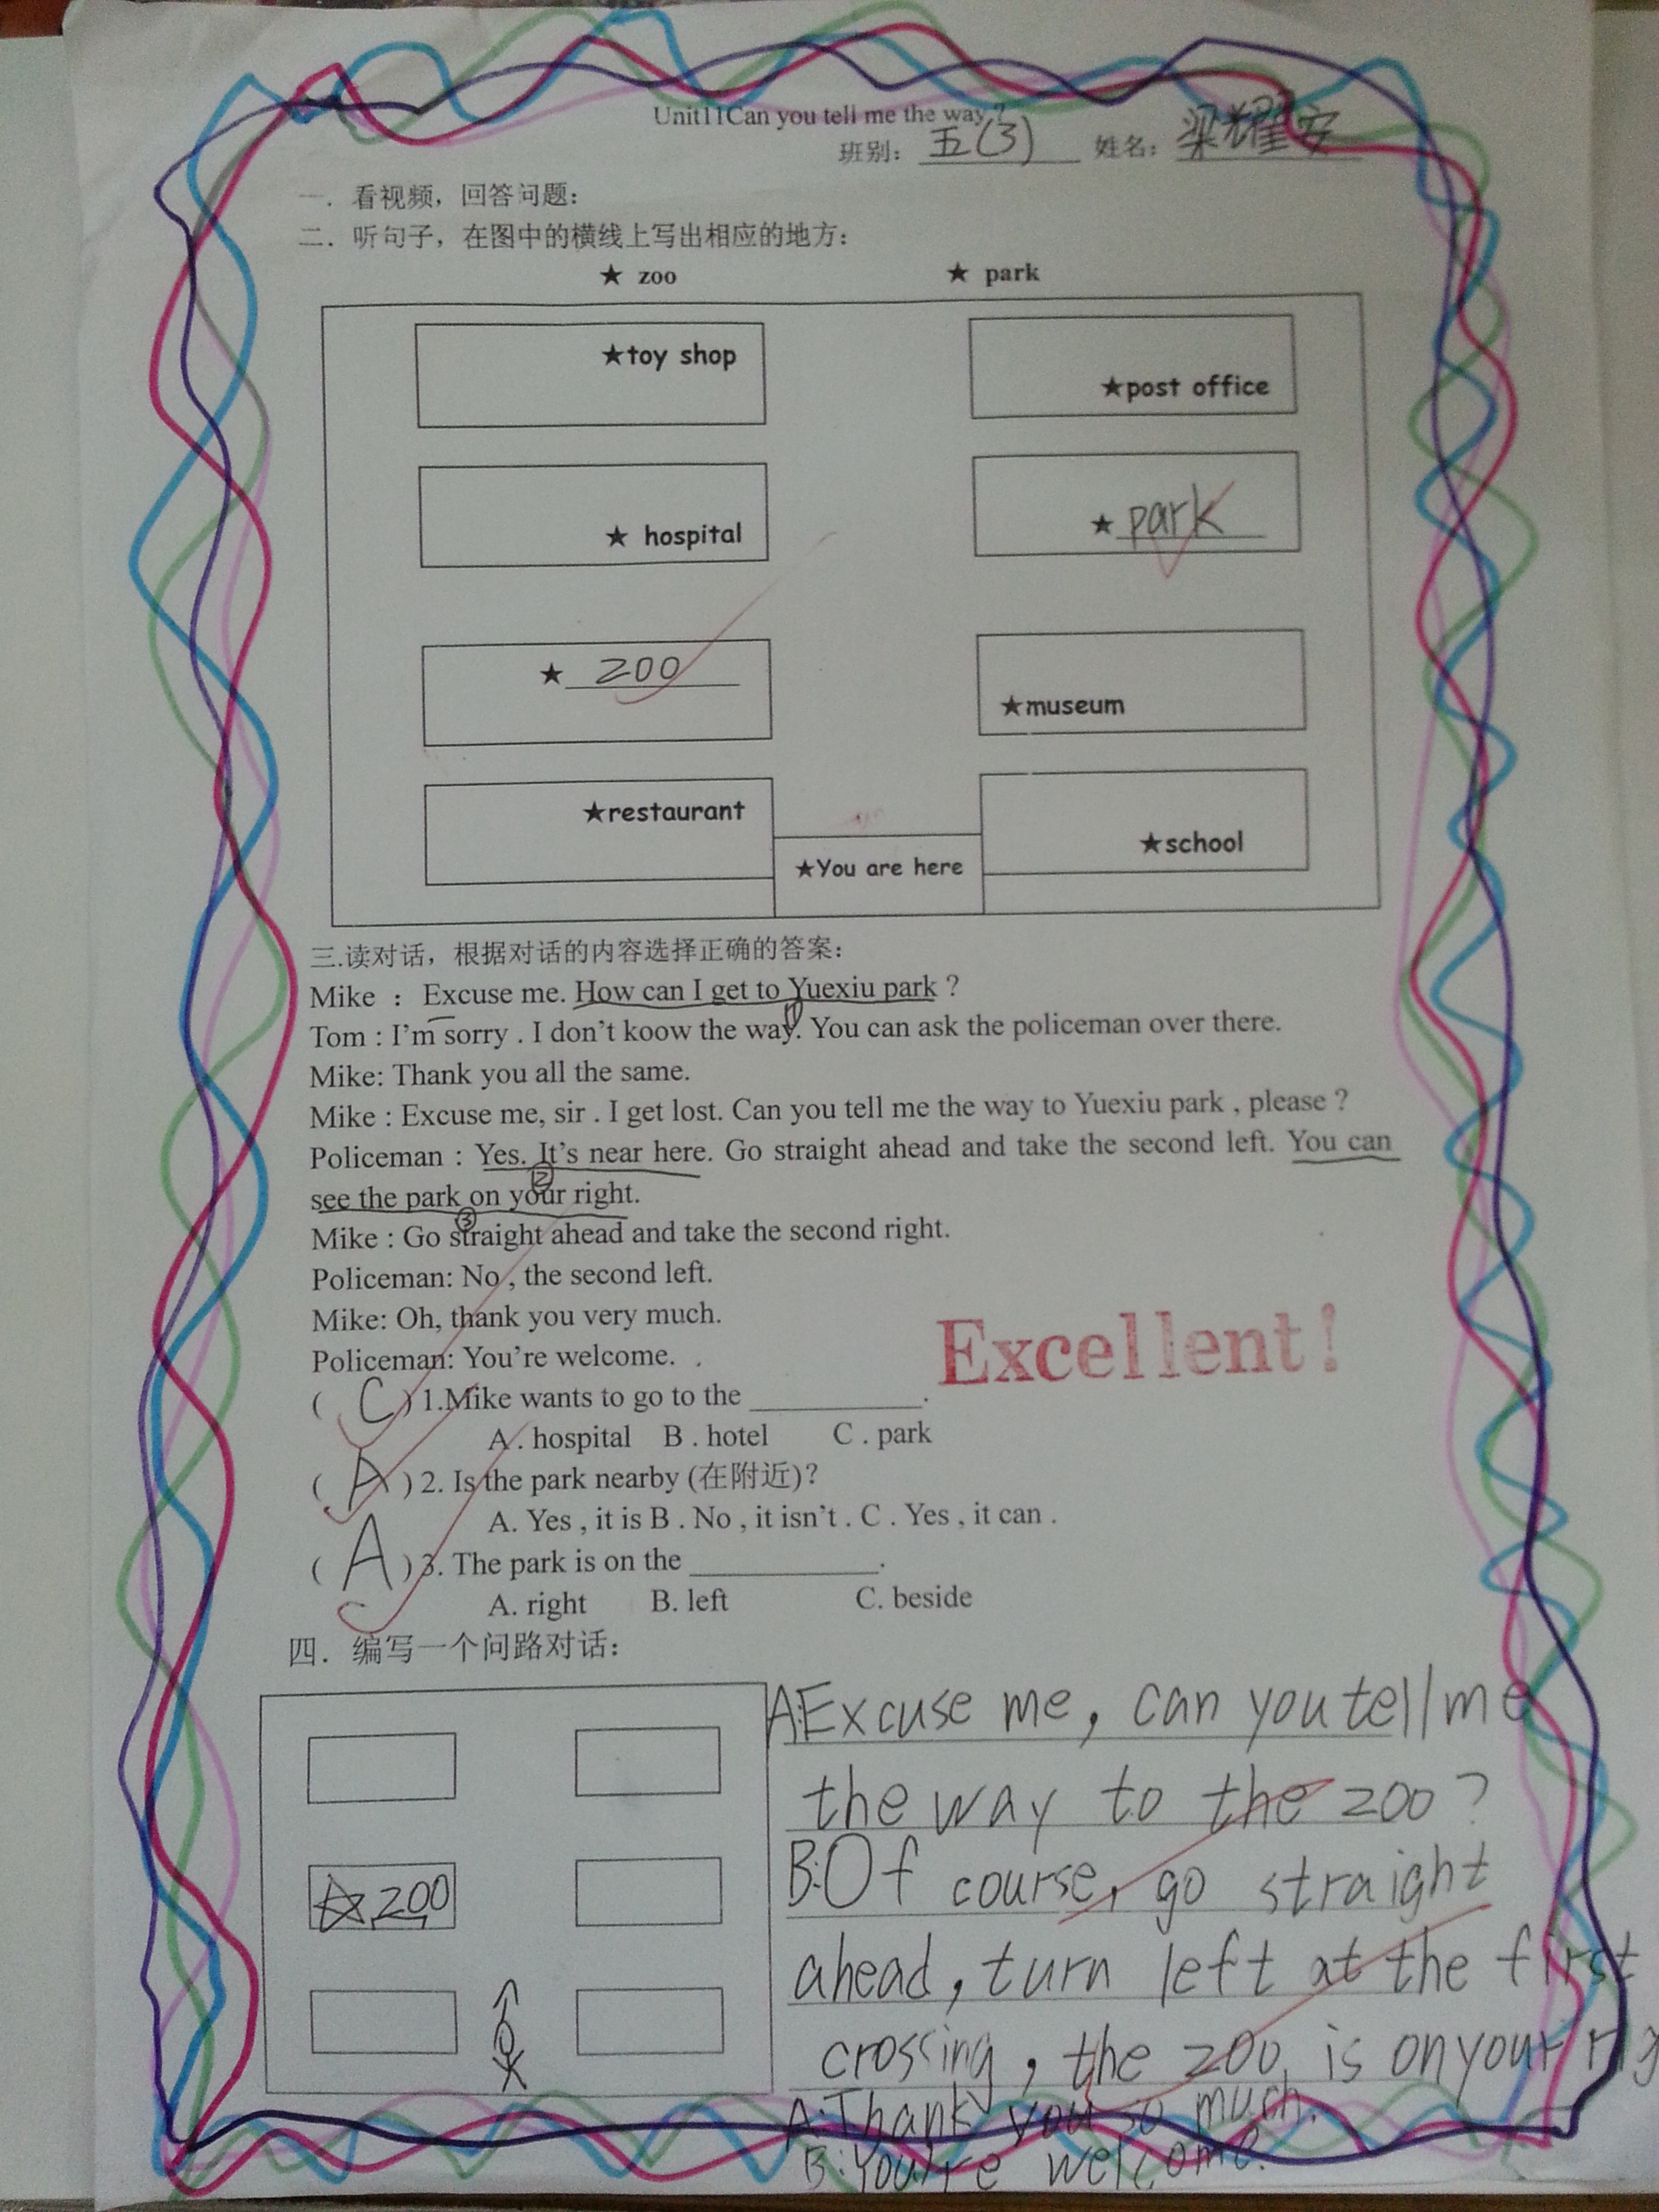 Unit11Can you tell me the way ?
班别： 五(3) 姓名： 梁耀安
一．看视频，回答问题：
二．听句子，在图中的横线上写出相应的地方：
★ zoo ★ park
★toy shop
★post office
★ hospital
★ park
★ zoo
★museum
★restaurant
★school
★You are here
三.读对话，根据对话的内容选择正确的答案：
Mike ： Excuse me. How can I get to Yuexiu park ?
①
Tom : I'm sorry . I don't koow the way. You can ask the policeman over there.
Mike: Thank you all the same.
Mike : Excuse me, sir . I get lost. Can you tell me the way to Yuexiu park , please ?
Policeman : Yes. It's near here. Go straight ahead and take the second left. You can
②
see the park on your right.
③
Mike : Go straight ahead and take the second right.
Policeman: No , the second left.
Mike: Oh, thank you very much.
Policeman: You're welcome. .
Excellent!
( C ) 1.Mike wants to go to the ____________.
A . hospital B . hotel C . park
( A ) 2. Is the park nearby (在附近)?
A. Yes , it is B . No , it isn't . C . Yes , it can .
( A ) 3. The park is on the _____________.
A. right B. left C. beside
四．编写一个问路对话：
☆ zoo
A:Excuse me, can you tell me
the way to the zoo ?
B:Of course, go straight
ahead, turn left at the first
crossing, the zoo is on your rig
A:Thank you so much.
B:You're welcome.